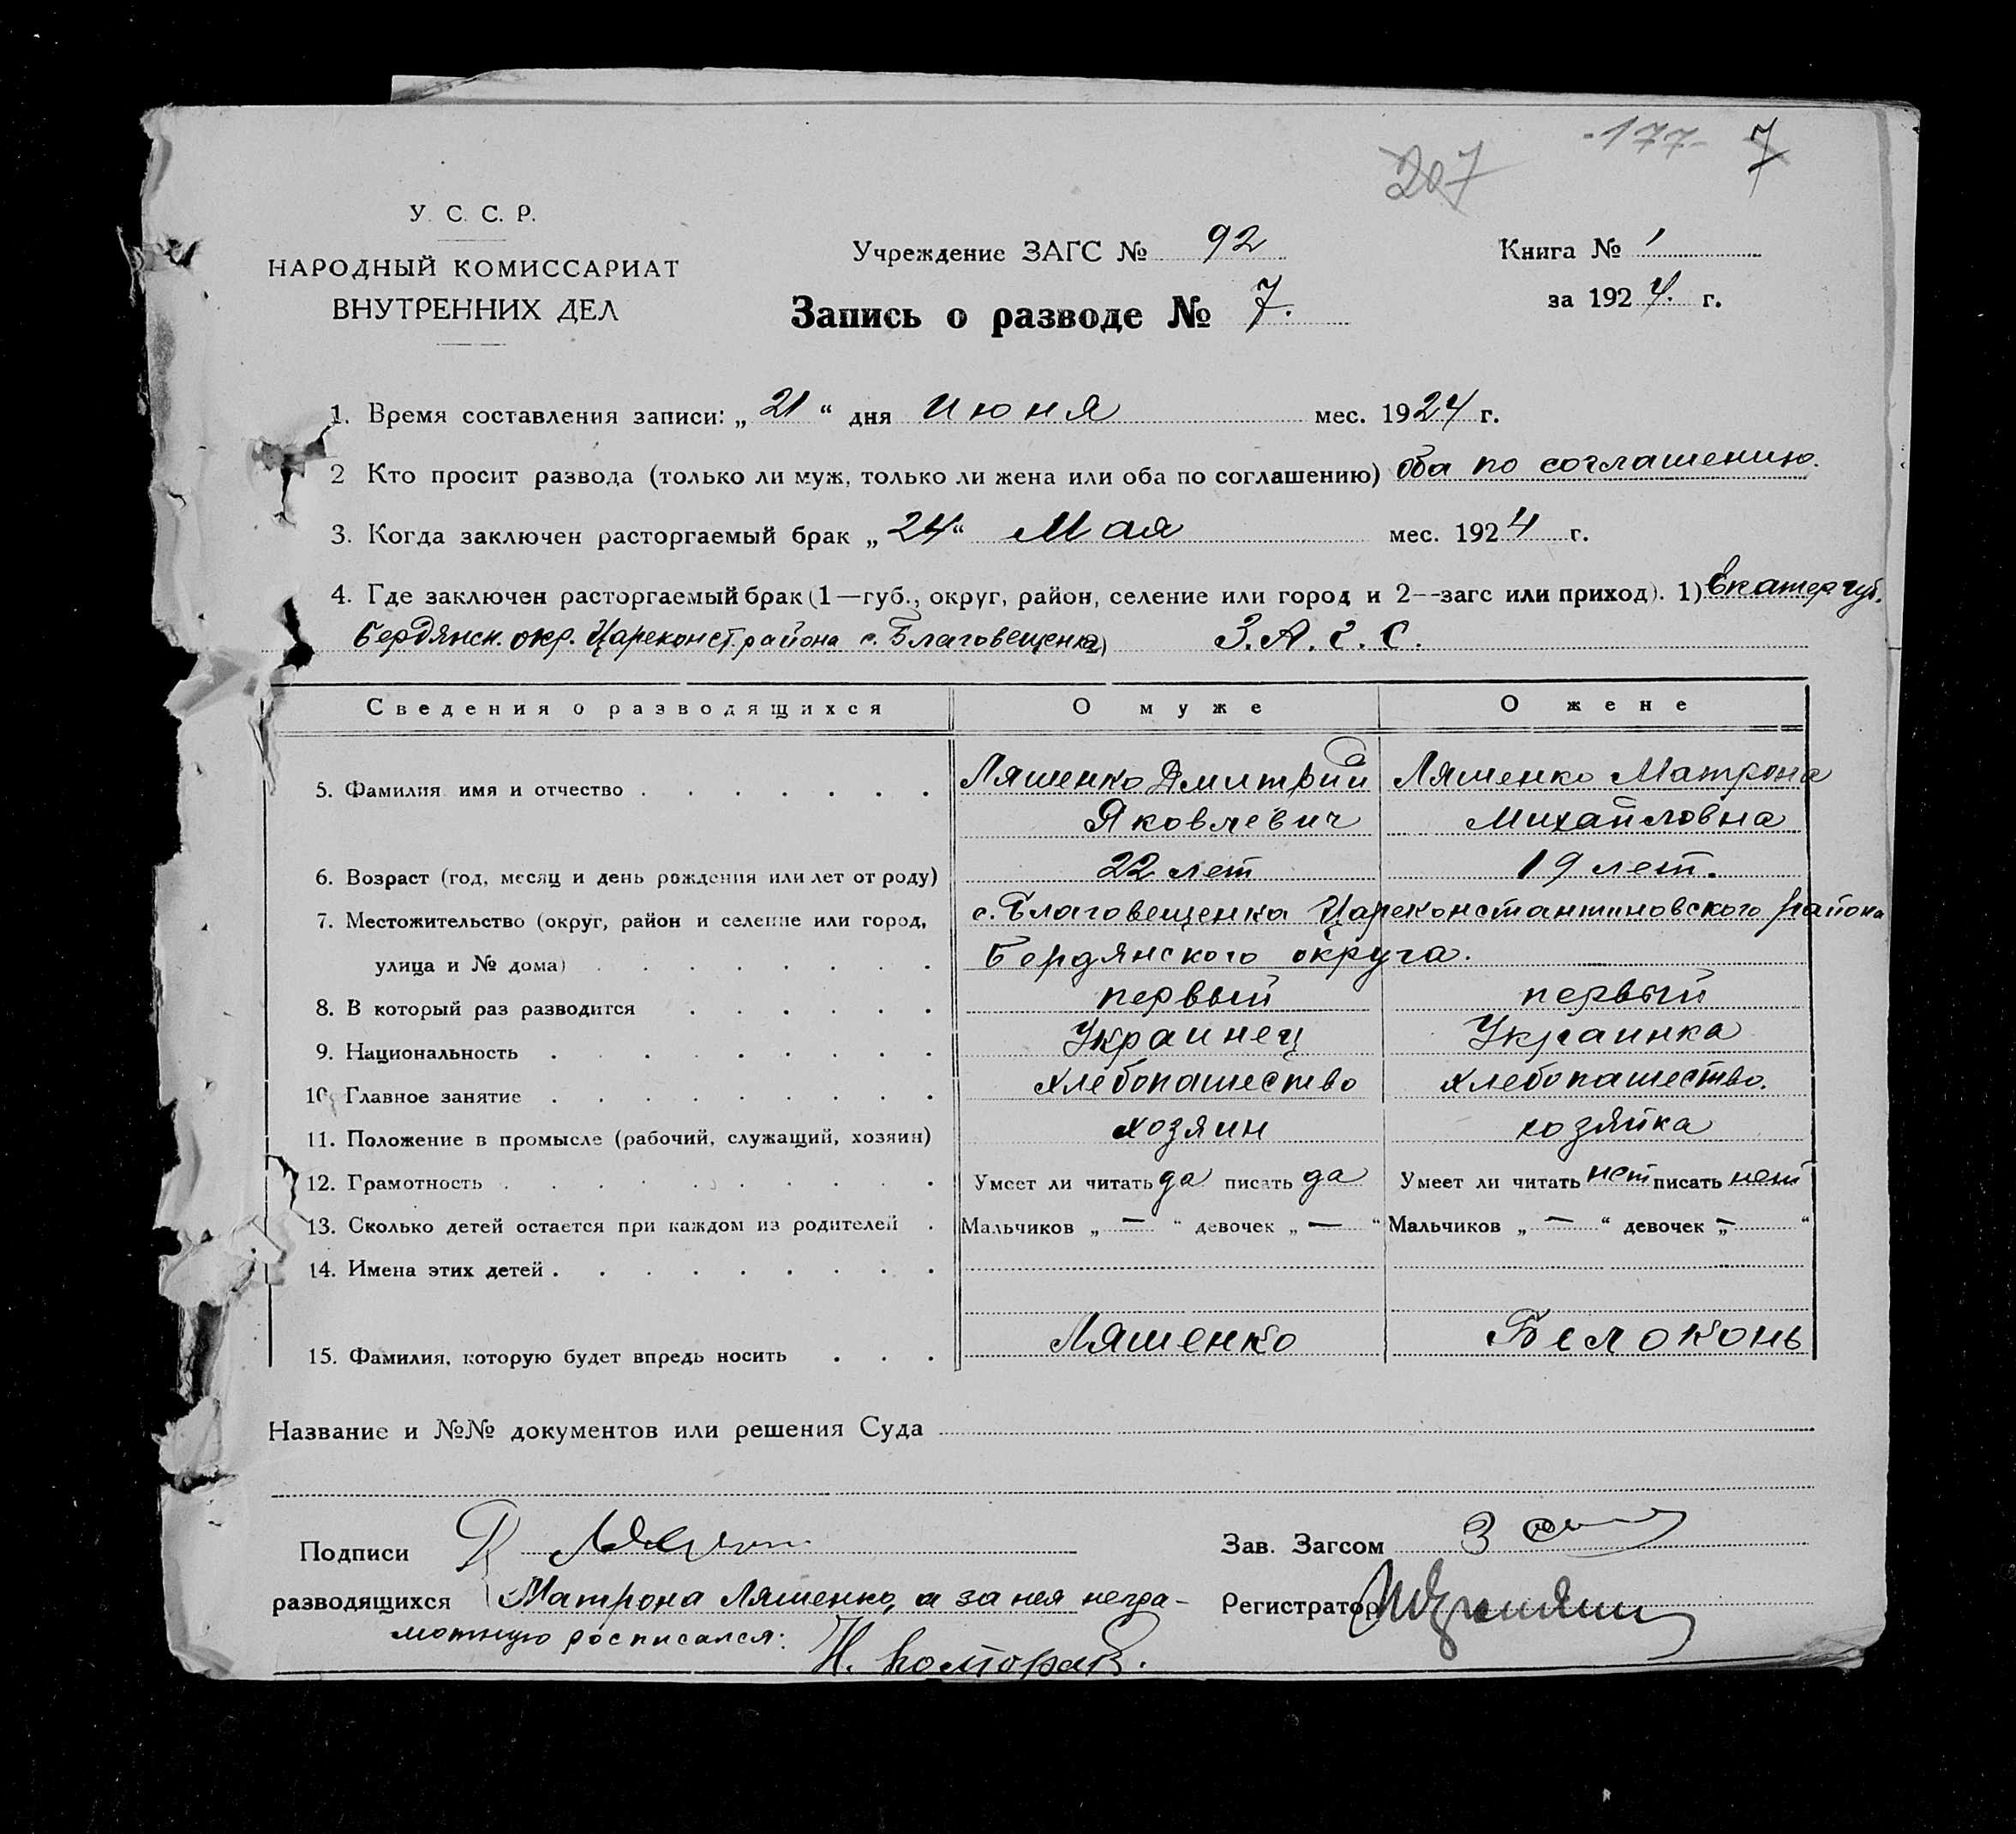 -177- 7
207
У. С. С. Р.
НАРОДНЫЙ КОМИССАРИАТ
ВНУТРЕННИХ ДЕЛ
Учреждение ЗАГС № 92
Запись о разводе № 7.
Книга № 1
за 1924. г.
1. Время составления записи: „21“ дня июня мес. 1924 г.
2 Кто просит развода (только ли муж, только ли жена или оба по соглашению) оба по соглашению.
3. Когда заключен расторгаемый брак „24“ Мая мес. 1924 г.
4. Где заключен расторгаемый брак (1—губ., округ, район, селение или город и 2--загс или приход). 1) Екатер губ.
Бердянск. окр. Цареконст. района с. Благовещенка) З. А. Г. С.
Сведения о разводящихся О муже О жене
5. Фамилия имя и отчество . . . . . . . Ляшенко Дмитрий Ляшенко Матрона
Яковлевич Михайловна
6. Возраст (год, месяц и день рождения или лет от роду) 22 лет 19 лет.
7. Местожительство (округ, район и селение или город, с. Благовещенка Цареконстантиновского района
улица и № дома) . . . . . . . . Бердянского округа.
8. В который раз разводится . . . . . . первый первый
9. Национальность . . . . . . . . . Украинец Украинка
10. Главное занятие . . . . . . . . . хлебопашество хлебопашество.
11. Положение в промысле (рабочий, служащий, хозяин) хозяин хозяйка
12. Грамотность . . . . . . . . . . Умеет ли читать да писать да Умеет ли читать нет писать нет
13. Сколько детей остается при каждом из родителей . Мальчиков „ — “ девочек „ — “ Мальчиков „ — “ девочек „ — “
14. Имена этих детей . . . . . . . . .
15. Фамилия, которую будет впредь носить . . . Ляшенко Белоконь
Название и №№ документов или решения Суда
Подписи Зав. Загсом
разводящихся Матрона Ляшенко, а за нея негра- Регистратор
мотную росписался:
Н.